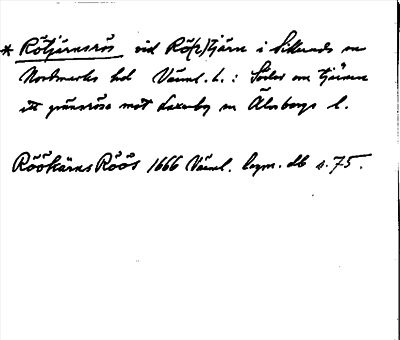 * Rötjärnsrös vid Rö(r)tjärn i Silleruds sn
Nordmarks hd Värml. l. : Söder om tjärnen
ett gränsröse mot Laxarby sn Älvsborgs l.
Röökärns Röös 1666 Värml. legm. db s. 75.